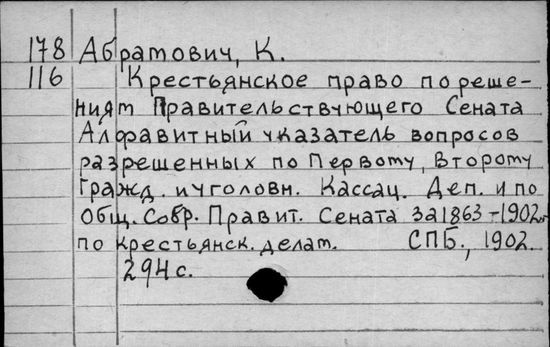 178 Абрамович, К.
116 Крестьянское право по реше-
ниям Правительствующего Сената
Алфавитный указатель вопросов
разрешенных по Первому, Второму
Гражд. и уголовн. Кассац. Деп. и по
Общ. Собр. Правит. Сената за 1863-1902г
по крестьянск. делам. СПБ., 1902.
294 с.